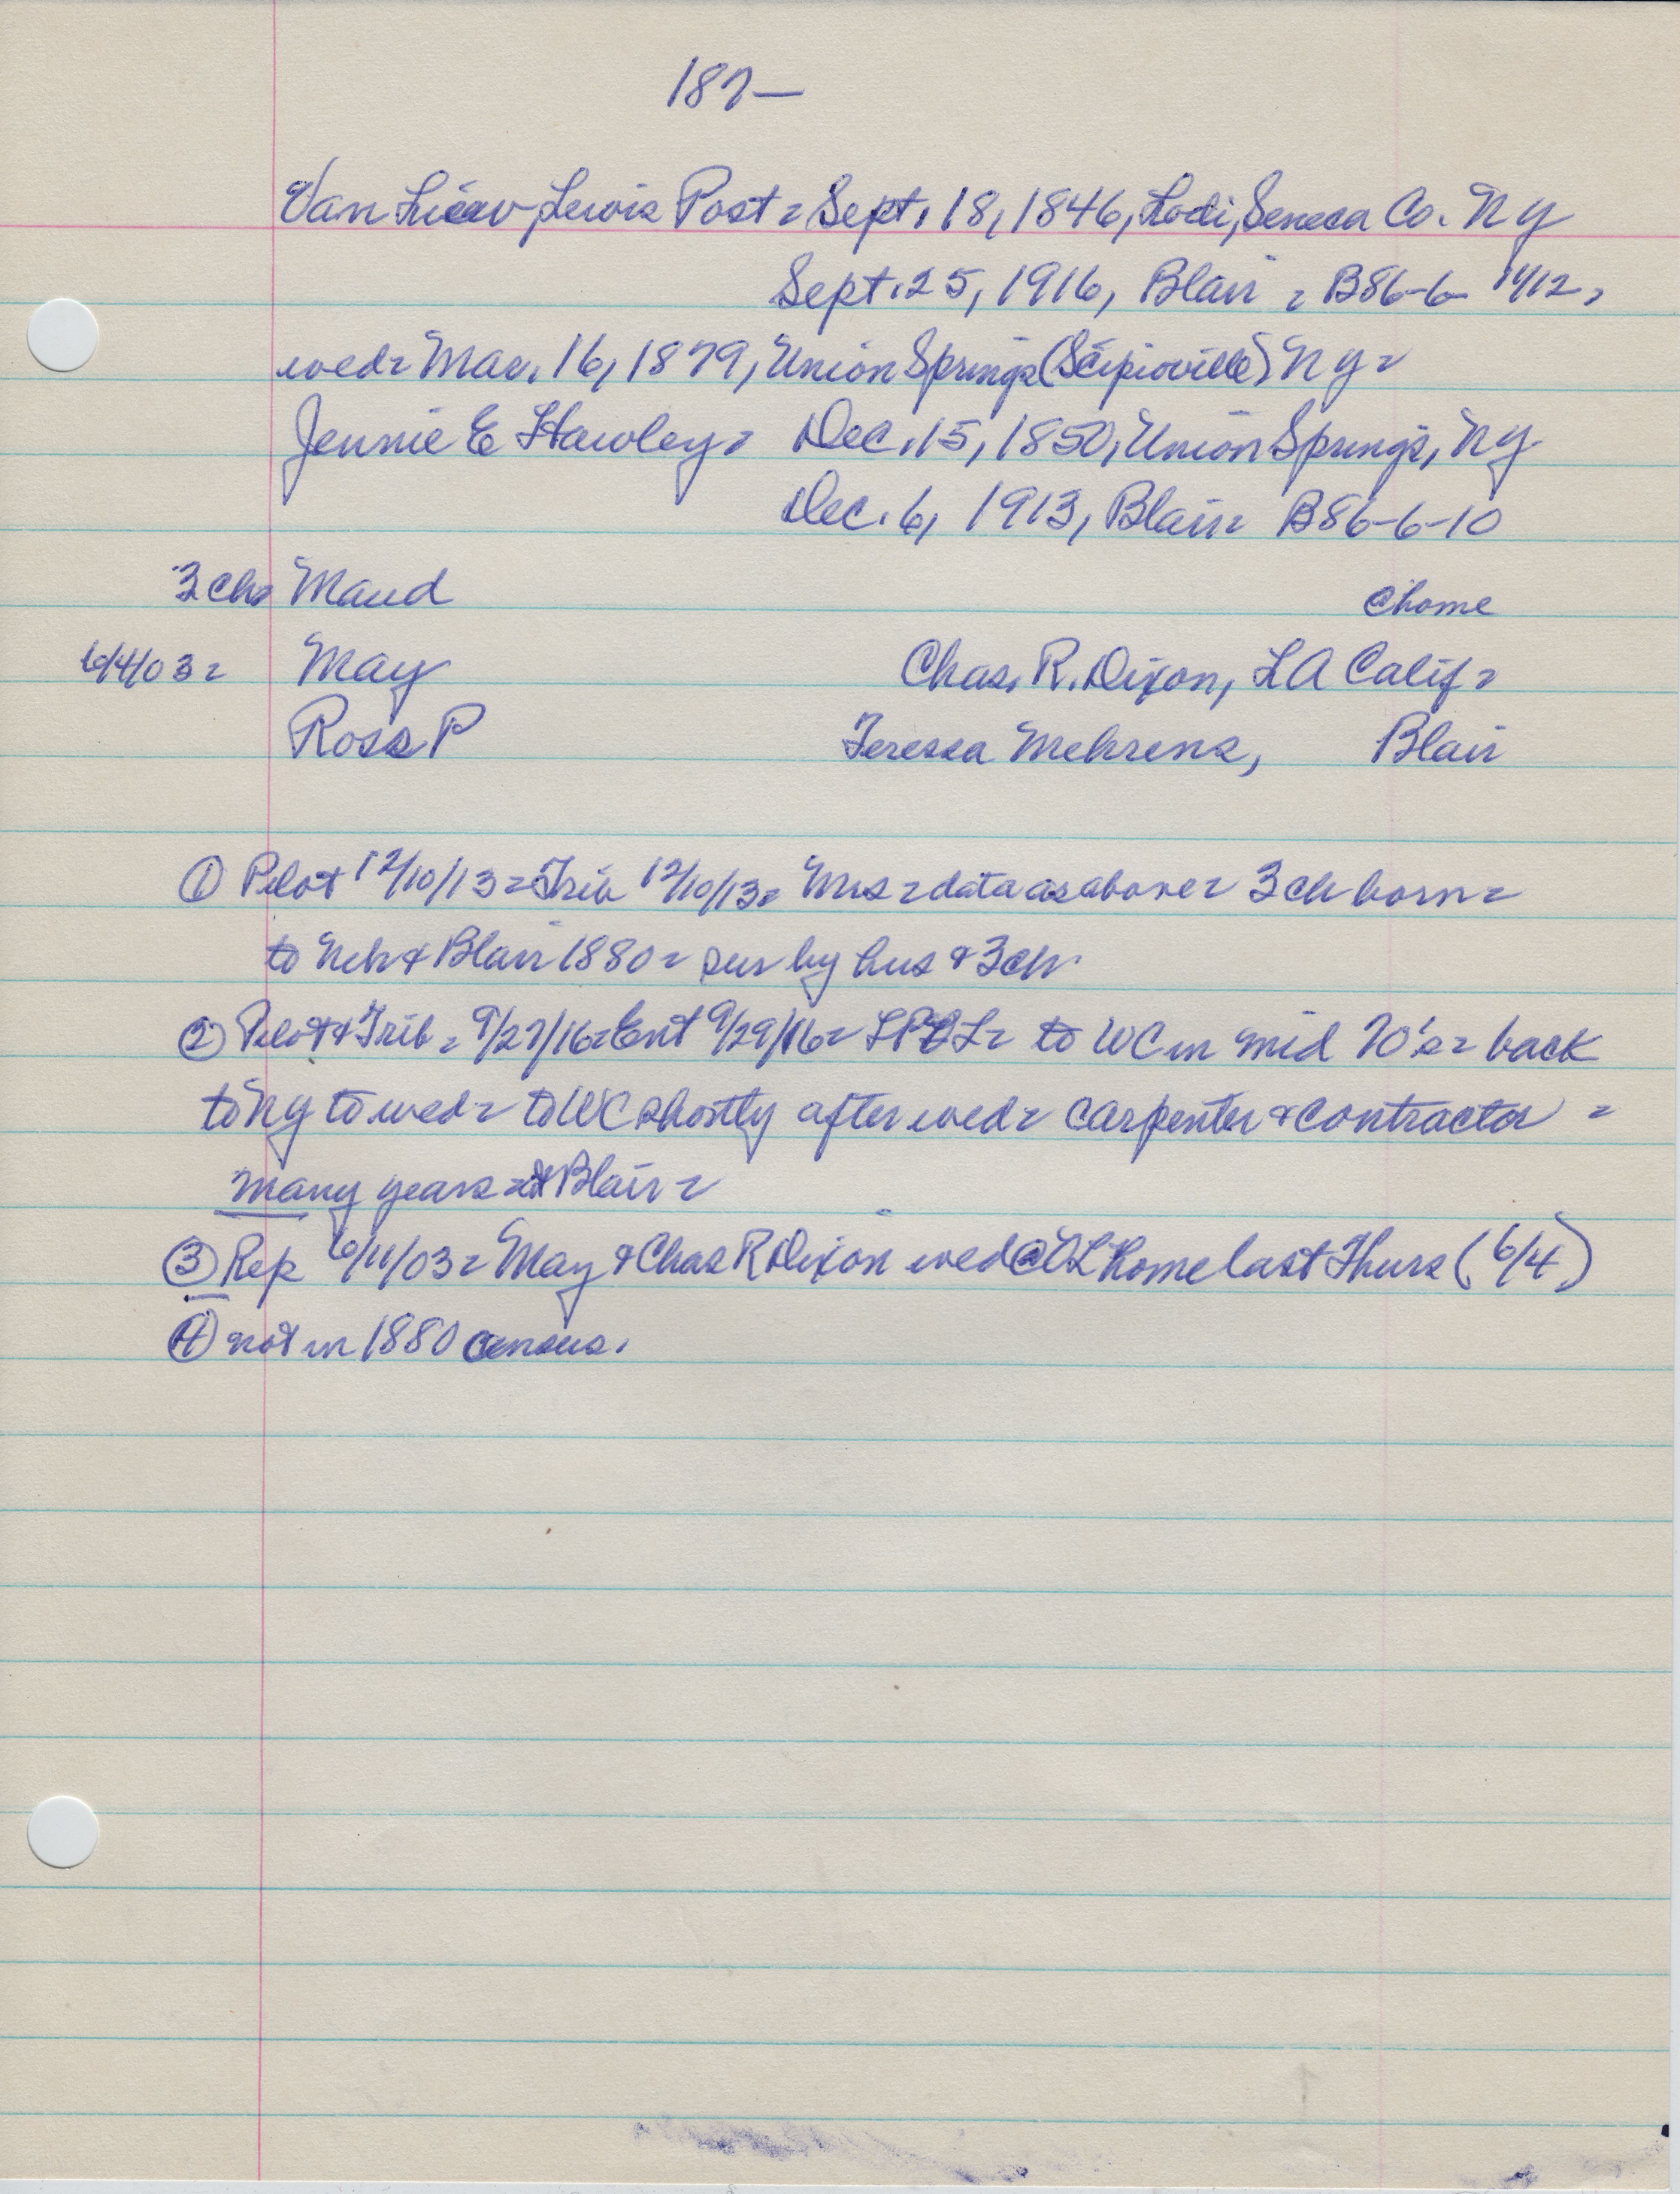 187-
Van Liew, Lewis Post = Sept. 18, 1846, Lodi, Seneca Co. NY
Sept. 25, 1916, Blair = B86-6-
wed = Mar. 16, 1879, Union Springs (Scipioville) NY =
Jennie E Hawley = Dec. 15, 1850, Union Springs, NY
Dec. 6, 1913, Blair = B86-6-10
3 ch = Maud @home
6/4/03 = May Chas. R. Dixon, LA Calif =
Ross P Teressa Mehrens, Blair
① Pilot 12/10/13 = Trib 12/10/13 = Mrs = data as above = 3 ch born =
to Neb & Blair 1880 = sur by hus & 3 ch.
② Pilot & Trib = 9/27/16 = Ent 9/29/16 = = to WC in mid 70's = back
to NY to wed = to WC shortly after wed = carpenter & contractor =
many years = at Blair =
③ Rep 6/11/03 = May & Chas R Dixon wed @ home last Thurs (6/4)
④ not in 1880 census.